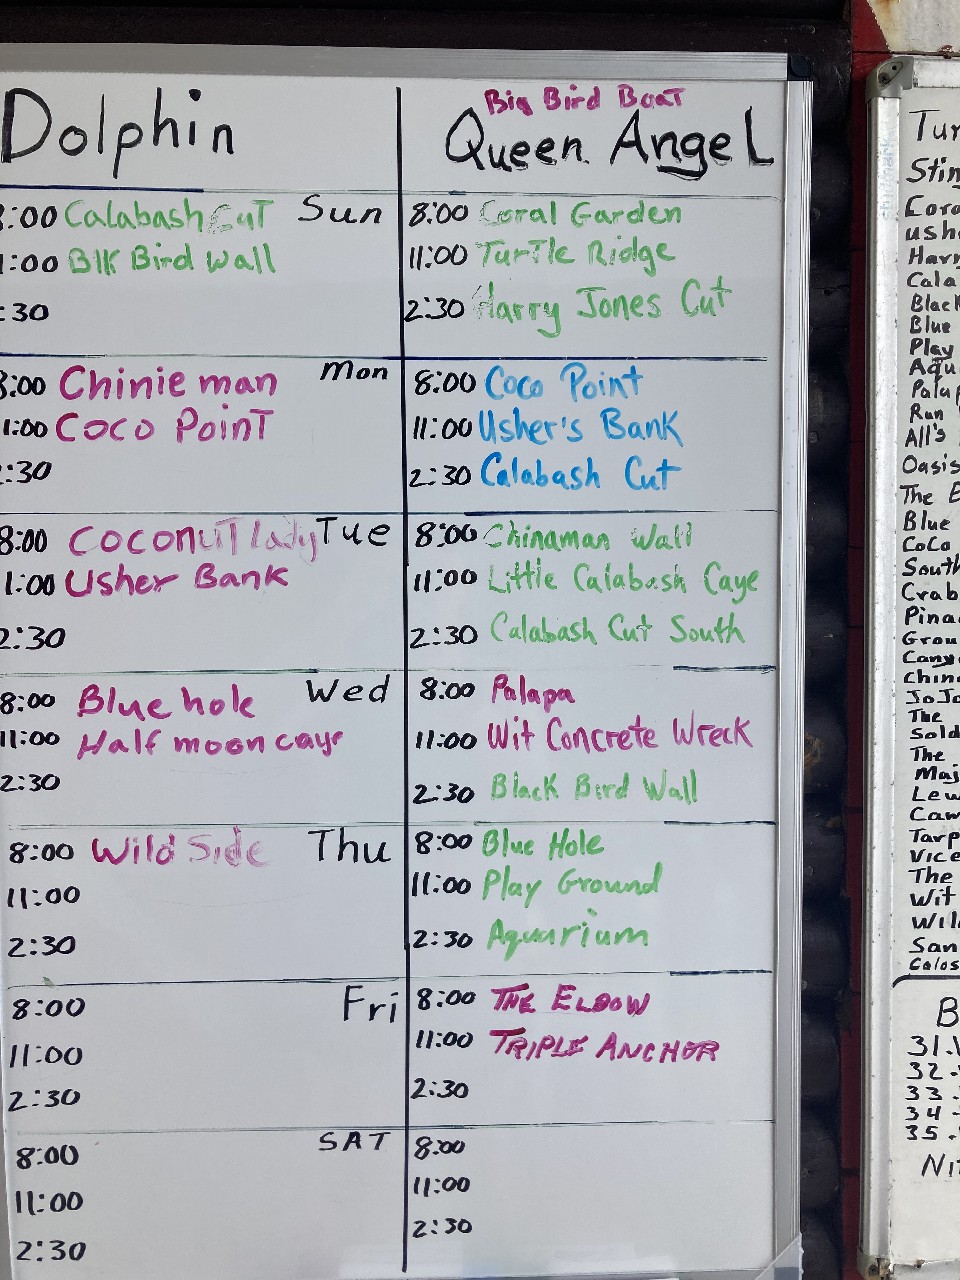 Dolphin
:00 Calabash Cut Sun
1:00 Blk Bird Wall
:30
8:00 Chinie man Mon
1:00 Coco Point
:30
8:00 Coconut lady Tue
1:00 Usher Bank
2:30
8:00 Blue hole Wed
11:00 Half moon caye
2:30
8:00 Wild Side Thu
11:00
2:30
8:00 Fri
11:00
2:30
8:00 SAT
11:00
2:30
Big Bird Boat
Queen Angel
8:00 Coral Garden
11:00 Turtle Ridge
2:30 Harry Jones Cut
8:00 Coco Point
11:00 Usher's Bank
2:30 Calabash Cut
8:00 Chinaman Wall
11:00 Little Calabash Caye
2:30 Calabash Cut South
8:00 Palapa
11:00 Wit Concrete Wreck
2:30 Black Bird Wall
8:00 Blue Hole
11:00 Play Ground
2:30 Aquarium
8:00 THE ELBOW
11:00 TRIPLE ANCHOR
2:30
8:00
11:00
2:30
Tur
Stin
Cora
ush
Harry
Cala
Black
Blue
Play
Aqu
Palap
Run
All's
Oasis
The E
Blue
CoCo
South
Crab
Pina
Grou
Cany
Chin
JoJo
The
Sold
The
Maj
Lew
Cam
Tarp
Vice
The
Wit
Wil
San
Colos
B
31.
32.
33.
34
35.
Nit